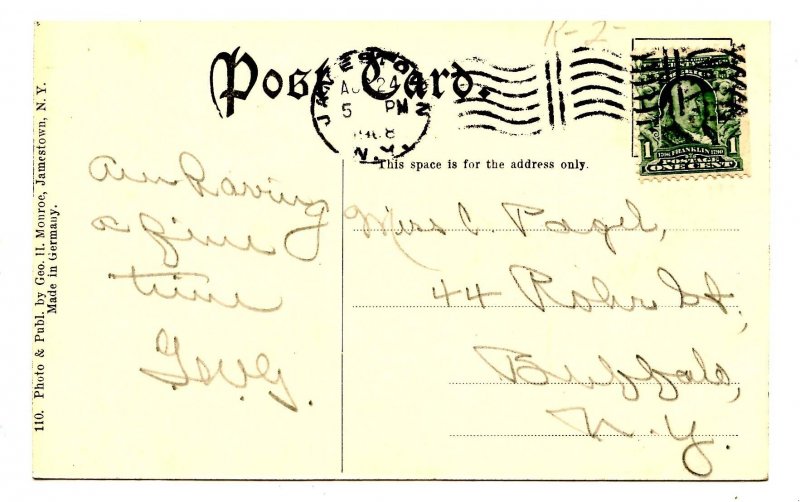 K-2-
Post Card.
JAMESTOWN
AUG 24
5 PM
N.Y.
1 FRANKLIN 1
POSTAGE
ONE CENT
This space is for the address only.
Am having
a fine
time
G.W.G.
Miss C. Pagel,
44 Rohr St,
Buffalo,
N.Y.
110. Photo & Publ. by Geo. H. Monroe, Jamestown, N. Y.
Made in Germany.